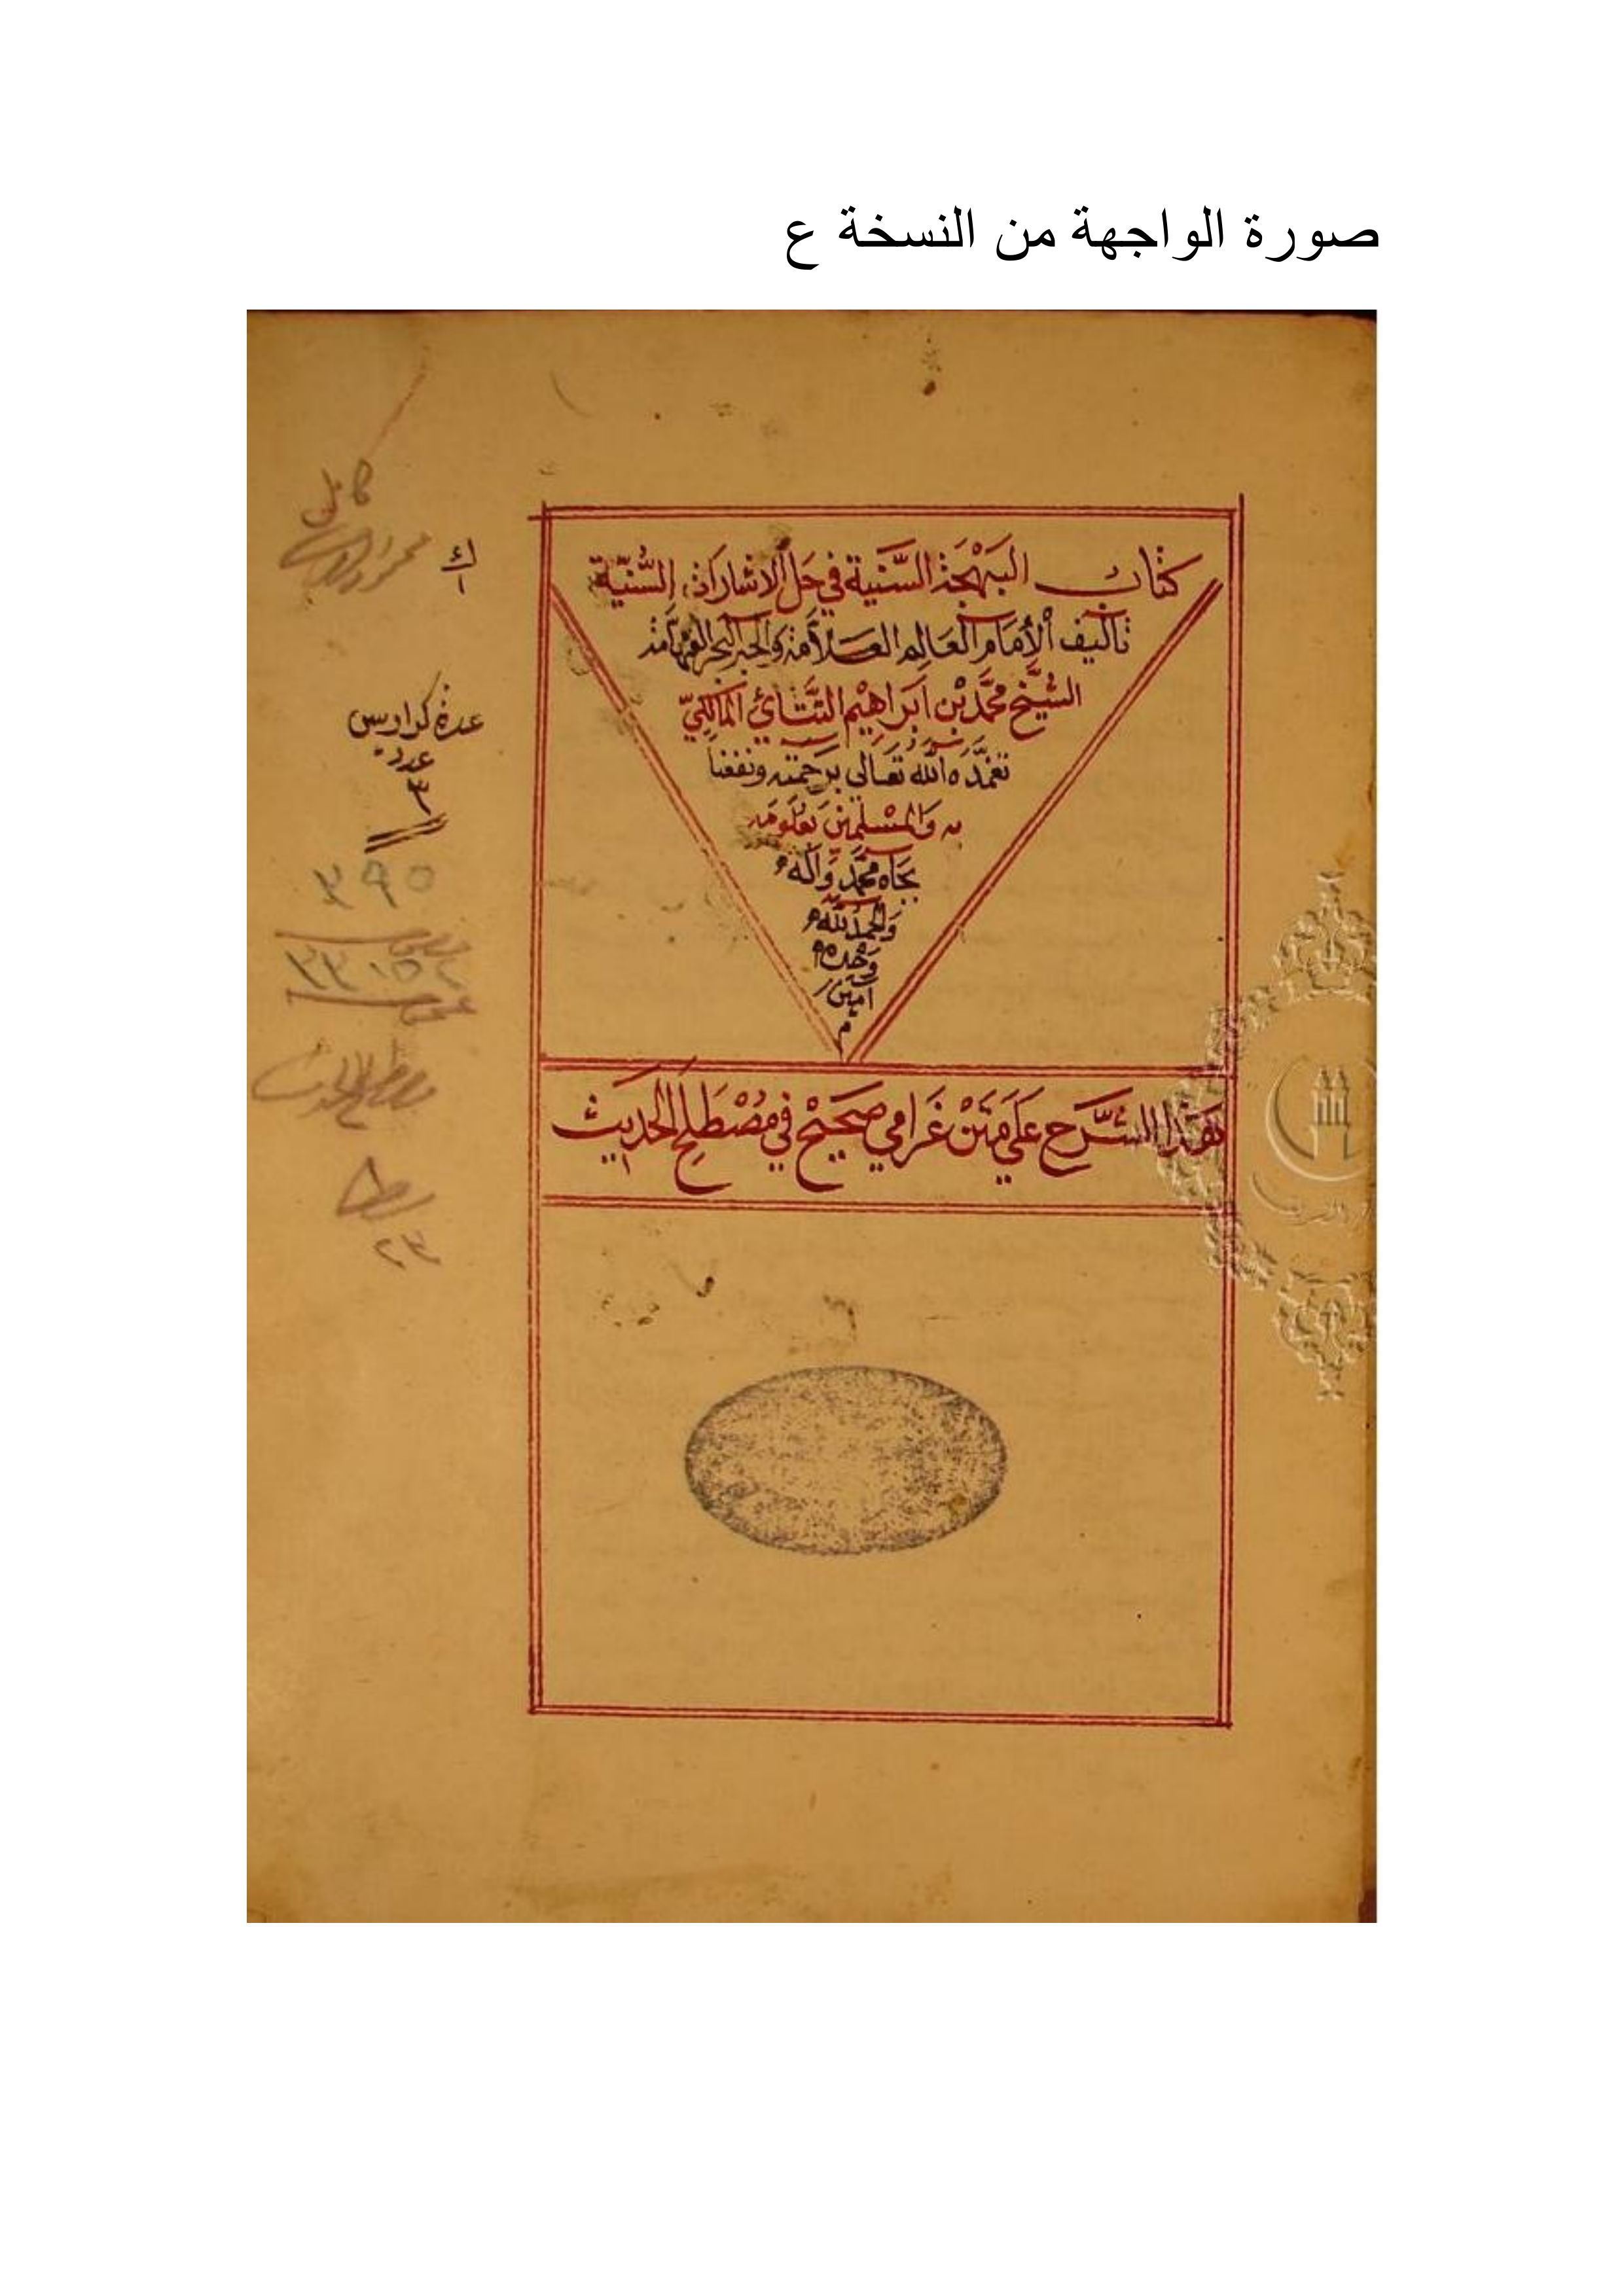 صورة الواجهة من النسخة ع
كتاب البَهْجَة السَّنية في حَل الاشارات السُّنيّة
تأليف الأمَام العَالِم العَلاّمة والحبر البحر الفهامة
الشيَّخ محمَّد بْن اَبراهيْم التَّتَائي المَالكيّ
تغمَّدَه الله تعَالى برَحمته ونفعنا
به وَالمسْلمين بعُلومه
بجَاه محمَّد وَآله
وَالحمدُ لله
وَحْدَه
آمين
م
هَذا الشَّرَح عَلَى مَتَنْ غَرامي صَحَيْح في مُصْطَلح الحَديث
كامل
ك
١
عدة كراريس
عدد
٣
٣٩٥
عمومى
مصطلح الحديث
٢٣